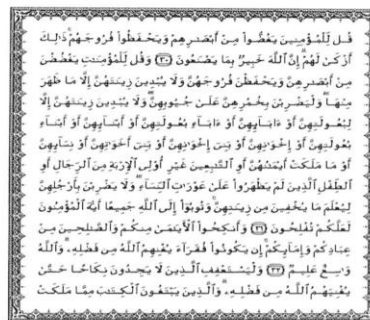 قُل لِّلْمُؤْمِنِينَ يَغُضُّوا۟ مِنْ أَبْصَـٰرِهِمْ وَيَحْفَظُوا۟ فُرُوجَهُمْ ذَٰلِكَ
أَزْكَىٰ لَهُمْ إِنَّ ٱللَّهَ خَبِيرٌۢ بِمَا يَصْنَعُونَ ﴿٣٠﴾ وَقُل لِّلْمُؤْمِنَـٰتِ يَغْضُضْنَ
مِنْ أَبْصَـٰرِهِنَّ وَيَحْفَظْنَ فُرُوجَهُنَّ وَلَا يُبْدِينَ زِينَتَهُنَّ إِلَّا مَا ظَهَرَ
مِنْهَا وَلْيَضْرِبْنَ بِخُمُرِهِنَّ عَلَىٰ جُيُوبِهِنَّ وَلَا يُبْدِينَ زِينَتَهُنَّ إِلَّا
لِبُعُولَتِهِنَّ أَوْ ءَابَآئِهِنَّ أَوْ ءَابَآءِ بُعُولَتِهِنَّ أَوْ أَبْنَآئِهِنَّ أَوْ أَبْنَآءِ
بُعُولَتِهِنَّ أَوْ إِخْوَٰنِهِنَّ أَوْ بَنِىٓ إِخْوَٰنِهِنَّ أَوْ بَنِىٓ أَخَوَٰتِهِنَّ أَوْ نِسَآئِهِنَّ
أَوْ مَا مَلَكَتْ أَيْمَـٰنُهُنَّ أَوِ ٱلتَّـٰبِعِينَ غَيْرِ أُو۟لِى ٱلْإِرْبَةِ مِنَ ٱلرِّجَالِ أَوِ
ٱلطِّفْلِ ٱلَّذِينَ لَمْ يَظْهَرُوا۟ عَلَىٰ عَوْرَٰتِ ٱلنِّسَآءِ وَلَا يَضْرِبْنَ بِأَرْجُلِهِنَّ
لِيُعْلَمَ مَا يُخْفِينَ مِن زِينَتِهِنَّ وَتُوبُوٓا۟ إِلَى ٱللَّهِ جَمِيعًا أَيُّهَ ٱلْمُؤْمِنُونَ
لَعَلَّكُمْ تُفْلِحُونَ ﴿٣١﴾ وَأَنكِحُوا۟ ٱلْأَيَـٰمَىٰ مِنكُمْ وَٱلصَّـٰلِحِينَ مِنْ
عِبَادِكُمْ وَإِمَآئِكُمْ إِن يَكُونُوا۟ فُقَرَآءَ يُغْنِهِمُ ٱللَّهُ مِن فَضْلِهِۦ وَٱللَّهُ
وَٰسِعٌ عَلِيمٌ ﴿٣٢﴾ وَلْيَسْتَعْفِفِ ٱلَّذِينَ لَا يَجِدُونَ نِكَاحًا حَتَّىٰ
يُغْنِيَهُمُ ٱللَّهُ مِن فَضْلِهِۦ وَٱلَّذِينَ يَبْتَغُونَ ٱلْكِتَـٰبَ مِمَّا مَلَكَتْ